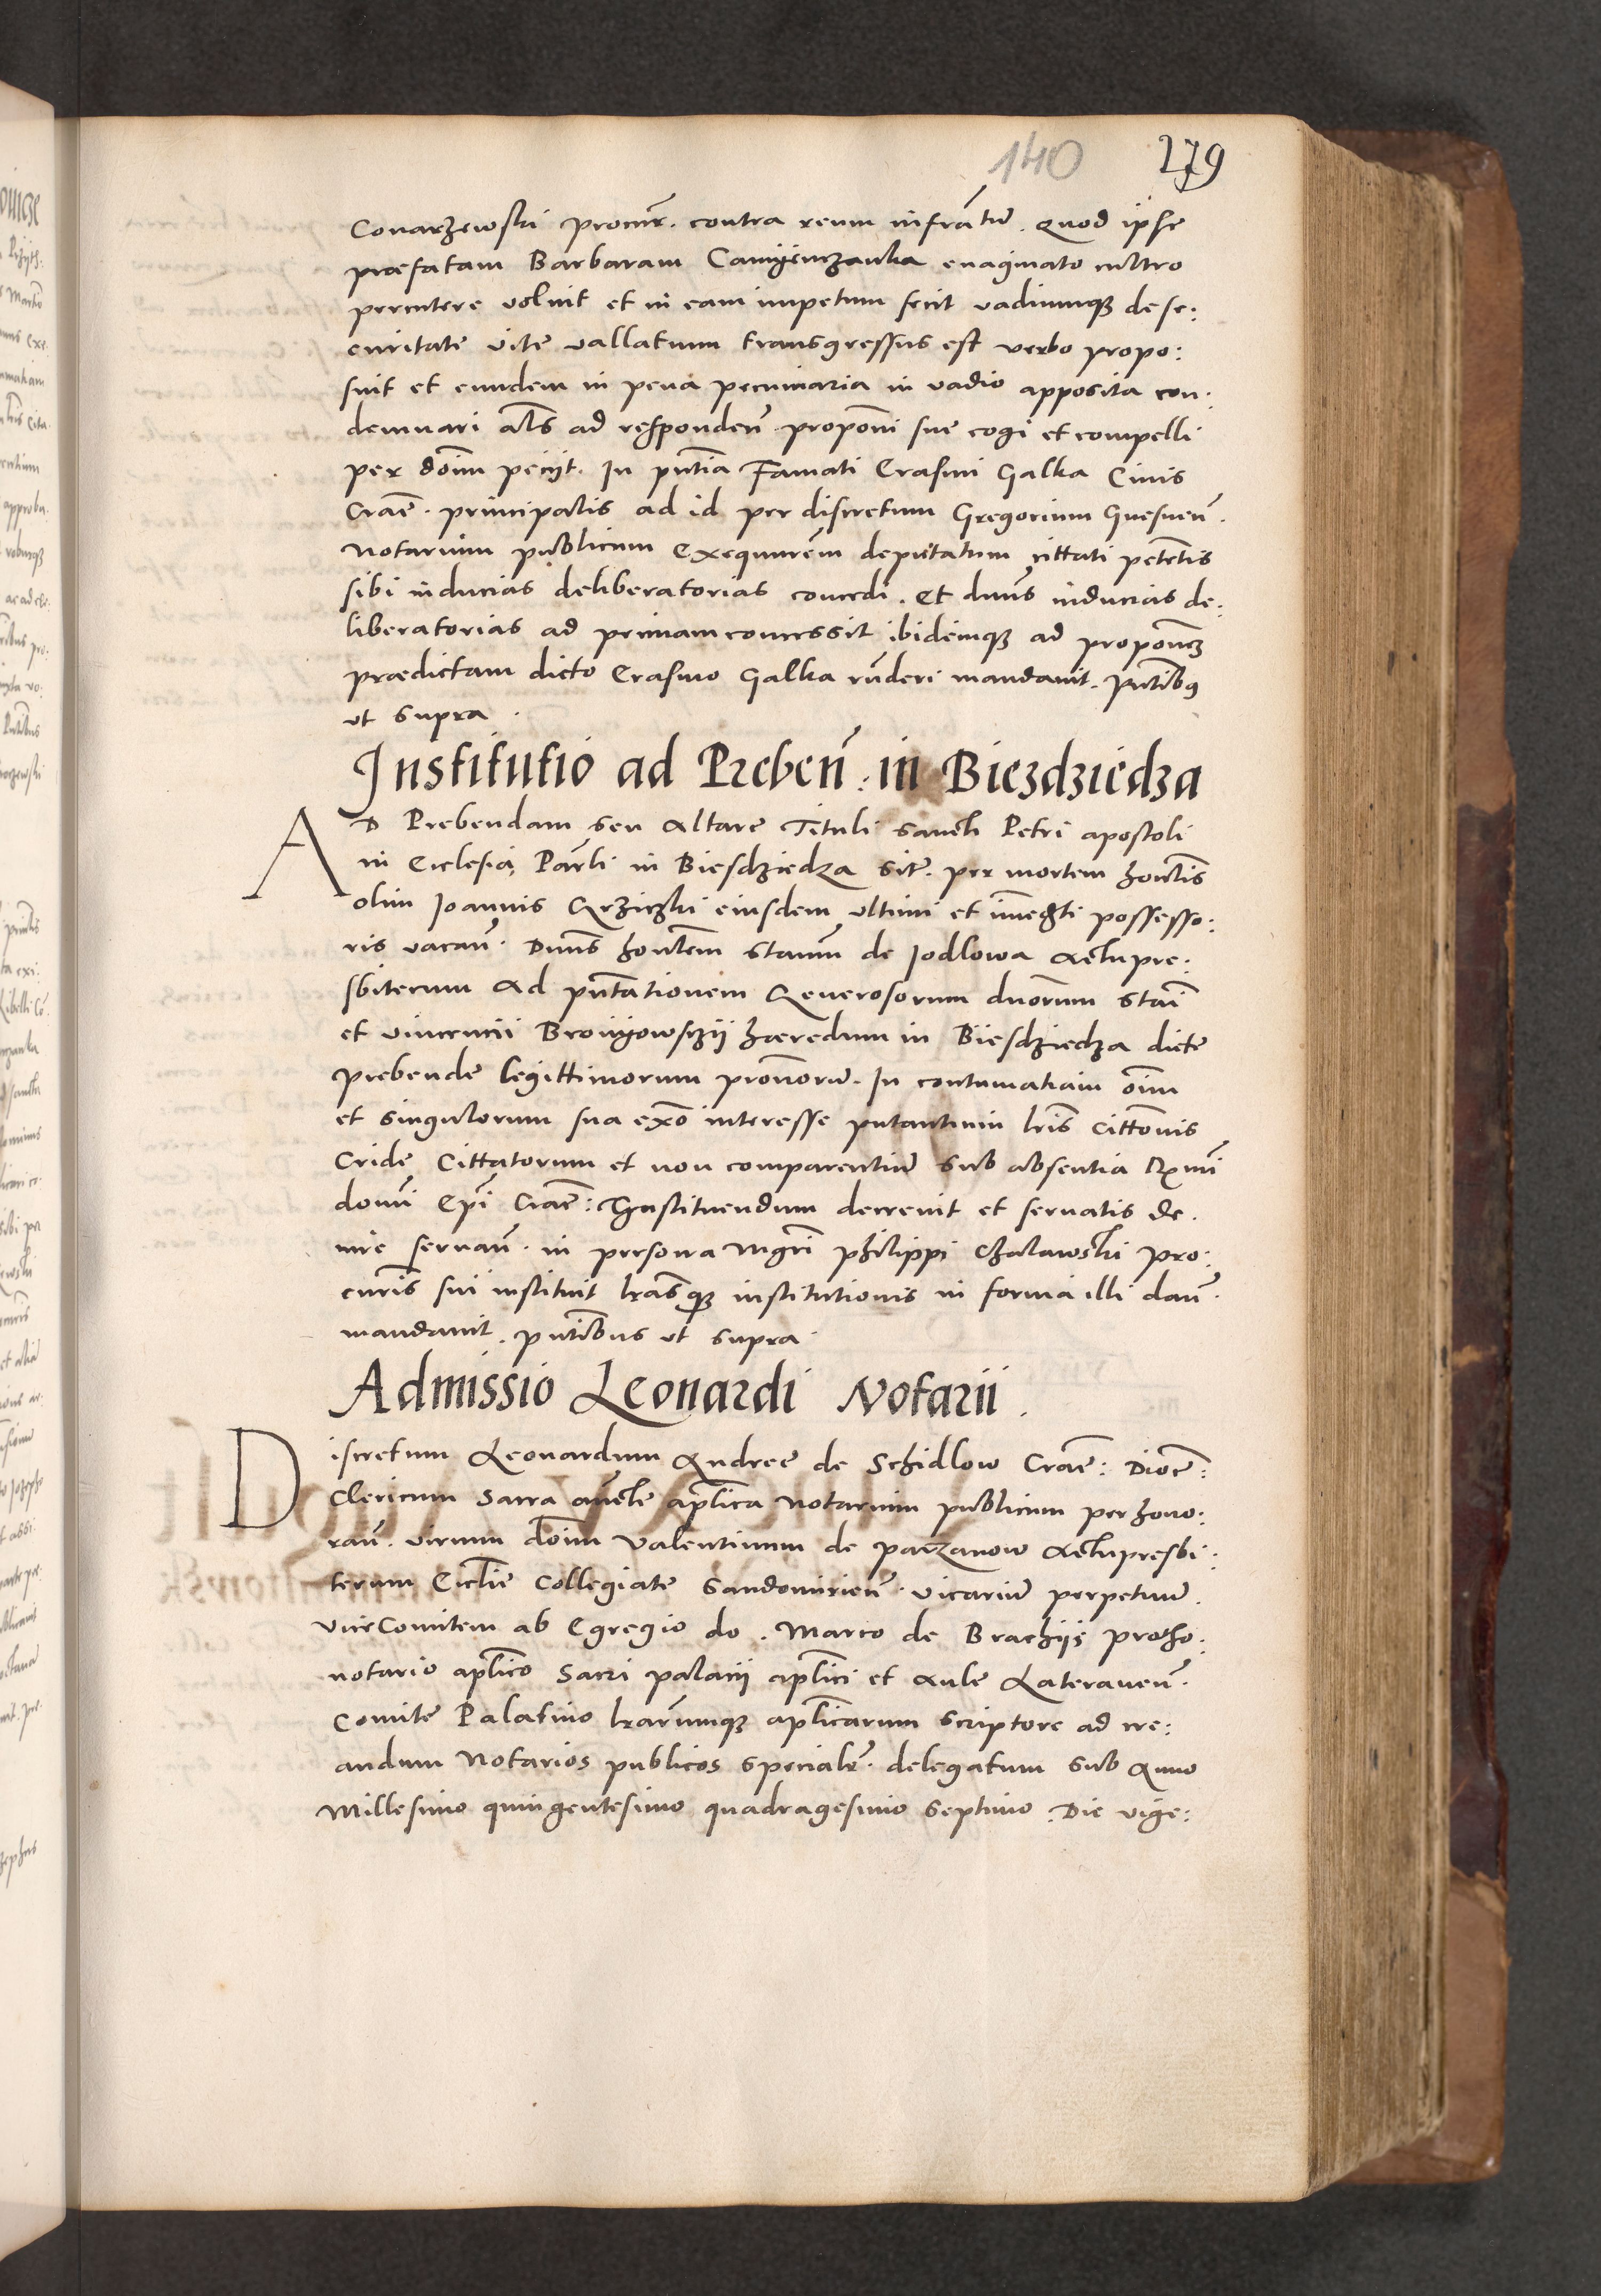 140 279
Conarzewski procur̃. contra reum infrãtũ. Quod ipse
præfatam Barbaram Camijenczanka enaginato cultro
percutere voluit et in eam impetum fecit vadiumqȝ de se:
curitate vite vallatum transgressus est verbo propo:
suit et eundem in pena pecuniaria in vadio apposita con:
demnari al̃s ad responden̄ propon̄i sue cogi et compelli
per dom̄ petijt. In pn̄tia Famati Erasmi Galka Civis
Craē. principalis ad id per discretum Gregorium Gnesnen̄.
Notarium publicum Exequutem̄ deputatum cittati petentis
sibi inducias deliberatorias concedi. Et dnūs inducias de:
liberatorias ad primam concessit ibidemqȝ ad propon̄cȝ
prædictam dicto Erasmo Galka rñderi mandavit. Pn̄tibȝ
ut supra.
Institutio ad Preben̄. in Biezdziedza
AD Prebendam seu Altare Tituli Sancti Petri apostoli
in Ecclesia Parl̄i in Biesdziedza sitē. per mortem honĺis
olim Joannis ejusdem ultimi et im̄egti possesso:
ris vacan̄. Dnūs honl̄em Stanm̄ de Jodlowa Archipre:
sbiterum Ad pn̄tationem Generosorum dnōrum Stai̇̄
et Vincencii hæredum in Biesdziedza dicte
prebende legittimorum pron̄orum. In contumatiam oīm
et singulorum sua exō interesse putantium lrīs citton̄is
Cride Cittatorum et non comparentiũ sub absentia Rxmī
domī Epī Craē: Instituendum decrevit et servatis de
iure servan̄. in persona Mgrī Philippi Chalawski pro:
curīs sui instituit lrās qȝ institutionis in forma illi dan̄.
mandavit. pn̄tibus ut supra.
Admissio Leonardi Notarii.
Discretum Leonardum Andree de Schidlow Craē: Dioc̄:
Clericum Sacra auctē aplīca notarium publicum per hono:
ran̄. virum dom̄ Valentinum de Parzanow Archipresbi:
terum Ecclīe Collegiate Sandomirien̄. vicariũ perpetuũ.
ViceComitem ab Egregio do. Marco de Brachijs protho:
notario aplīco Sacri palacii aplīci et Aule Lateranen̄.
Comite Palatino lrārumqȝ aplīcarum scriptore ad cre:
andum Notarios publicos specialr̄. delegatum sub Anno
Millesimo quingentesimo quadragesimo Septimo. Die vige: